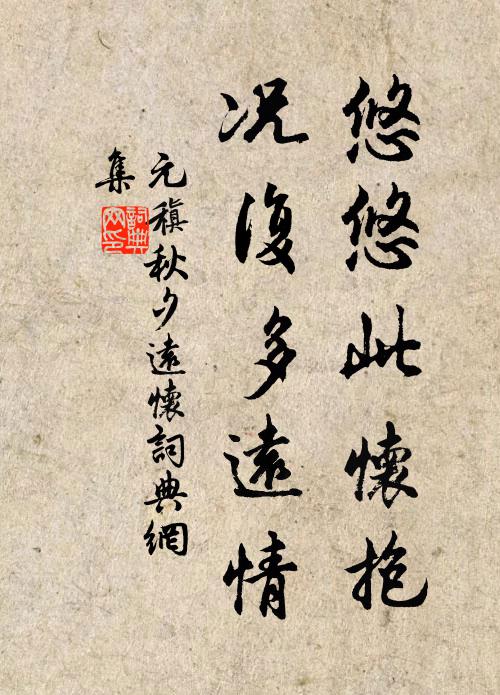 悠悠此懷抱
况復多遠情
元稹秋夕遠懷詞典網
集
詞典网印